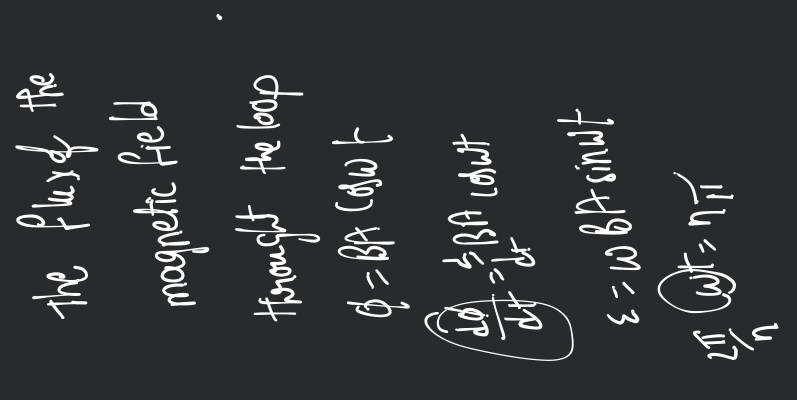 the flux of the
magnetic field
throught the loop
ϕ = BA Cosωt
dϕ/dt = d/dt BA cosωt
ε = ω BA sinωt
ωt = nπ
2π/n